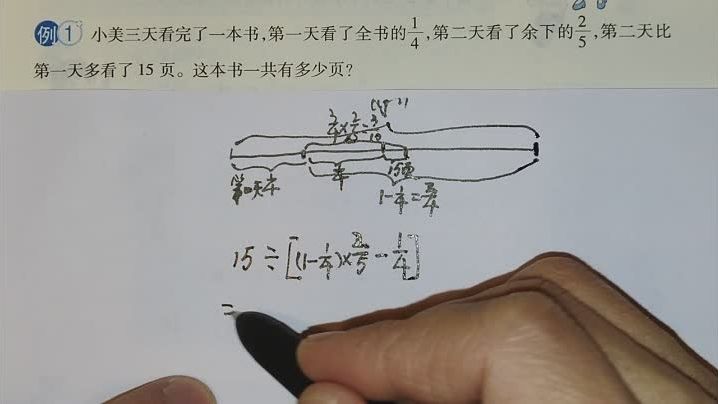 例1 小美三天看完了一本书,第一天看了全书的1/4,第二天看了余下的2/5,第二天比
第一天多看了 15 页。这本书一共有多少页?
3/4×2/5=3/10
1/4 1/4 15页
1-1/4=3/4
15÷[(1-1/4)×2/5-1/4]
=